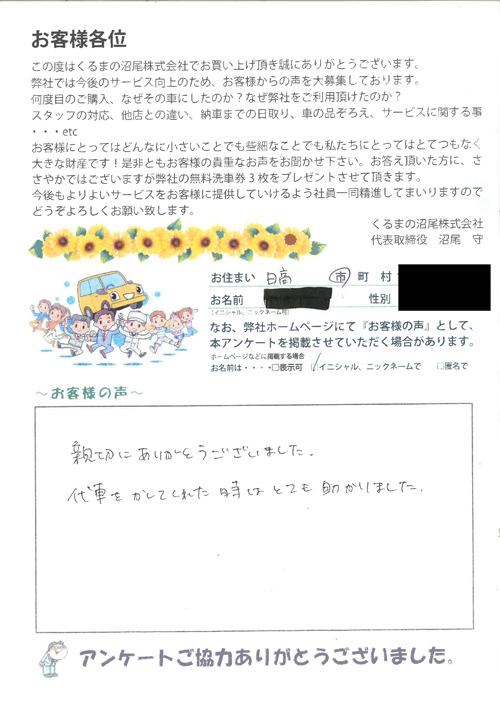 お客様各位
この度はくるまの沼尾株式会社でお買い上げ頂き誠にありがとうございます。
弊社では今後のサービス向上のため、お客様からの声を大募集しております。
何度目のご購入、なぜその車にしたのか？なぜ弊社をご利用頂けたのか？
スタッフの対応、他店との違い、納車までの日取り、車の品ぞろえ、サービスに関する事
・・・etc
お客様にとってはどんなに小さいことでも些細なことでも私たちにとってはとてつもなく
大きな財産です！是非ともお客様の貴重なお声をお聞かせ下さい。お答え頂いた方に、さ
さやかではございますが弊社の無料洗車券３枚をプレゼントさせて頂きます。
今後もよりよいサービスをお客様に提供していけるよう社員一同精進してまいりますので
どうぞよろしくお願い致します。
くるまの沼尾株式会社
代表取締役 沼尾 守
お住まい 日高 市 町 村
お名前 性別
(イニシャル、ニックネーム可)
なお、弊社ホームページにて『お客様の声』として、
本アンケートを掲載させていただく場合があります。
ホームページなどに掲載する場合
お名前は・・・・□表示可 □イニシャル、ニックネームで □匿名で
～お客様の声～
親切にありがとうございました.
代車をかしてくれた時はとても助かりました.
アンケートご協力ありがとうございました。